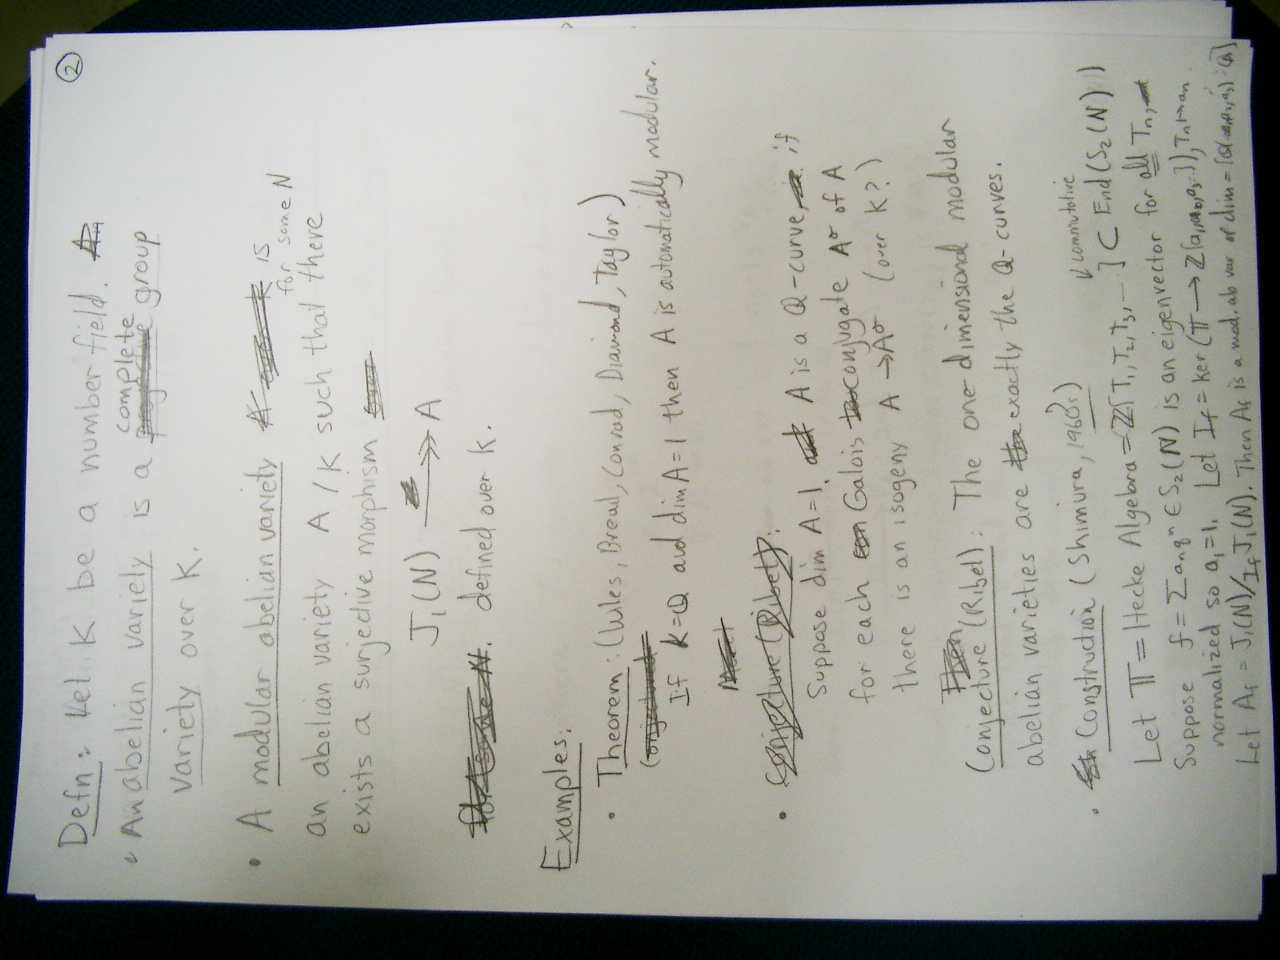 ②
Defn: Let K be a number field.
• An abelian variety is a complete group
variety over K.
• A modular abelian variety is
an abelian variety A/K such that there for some N
exists a surjective morphism
J₁(N) ↠ A
defined over K.
Examples:
• Theorem: (Wiles, Breuil, Conrad, Diamond, Taylor)
If K=Q and dim A=1 then A is automatically modular.
• Conjecture (Ribet):
Suppose dim A=1. A is a Q-curve if
for each Galois conjugate A^σ of A
there is an isogeny A → A^σ (over K?)
Conjecture (Ribet): The one dimensional modular
abelian varieties are exactly the Q-curves.
• Construction (Shimura, 1960s?)
Let 𝕋 = Hecke Algebra = ℤ[T₁, T₂, T₃, ...] ⊂ End(S₂(N)) ↙ commutative
Suppose f = Σ aₙqⁿ ∈ S₂(N) is an eigenvector for all Tₙ,
normalized so a₁=1. Let I_f = ker(𝕋 → ℤ[a₁,a₂,a₃,...]), Tₙ ↦ aₙ.
Let A_f = J₁(N)/I_f J₁(N). Then A_f is a mod. ab var of dim = [Q(a₁,a₂,a₃...):Q]